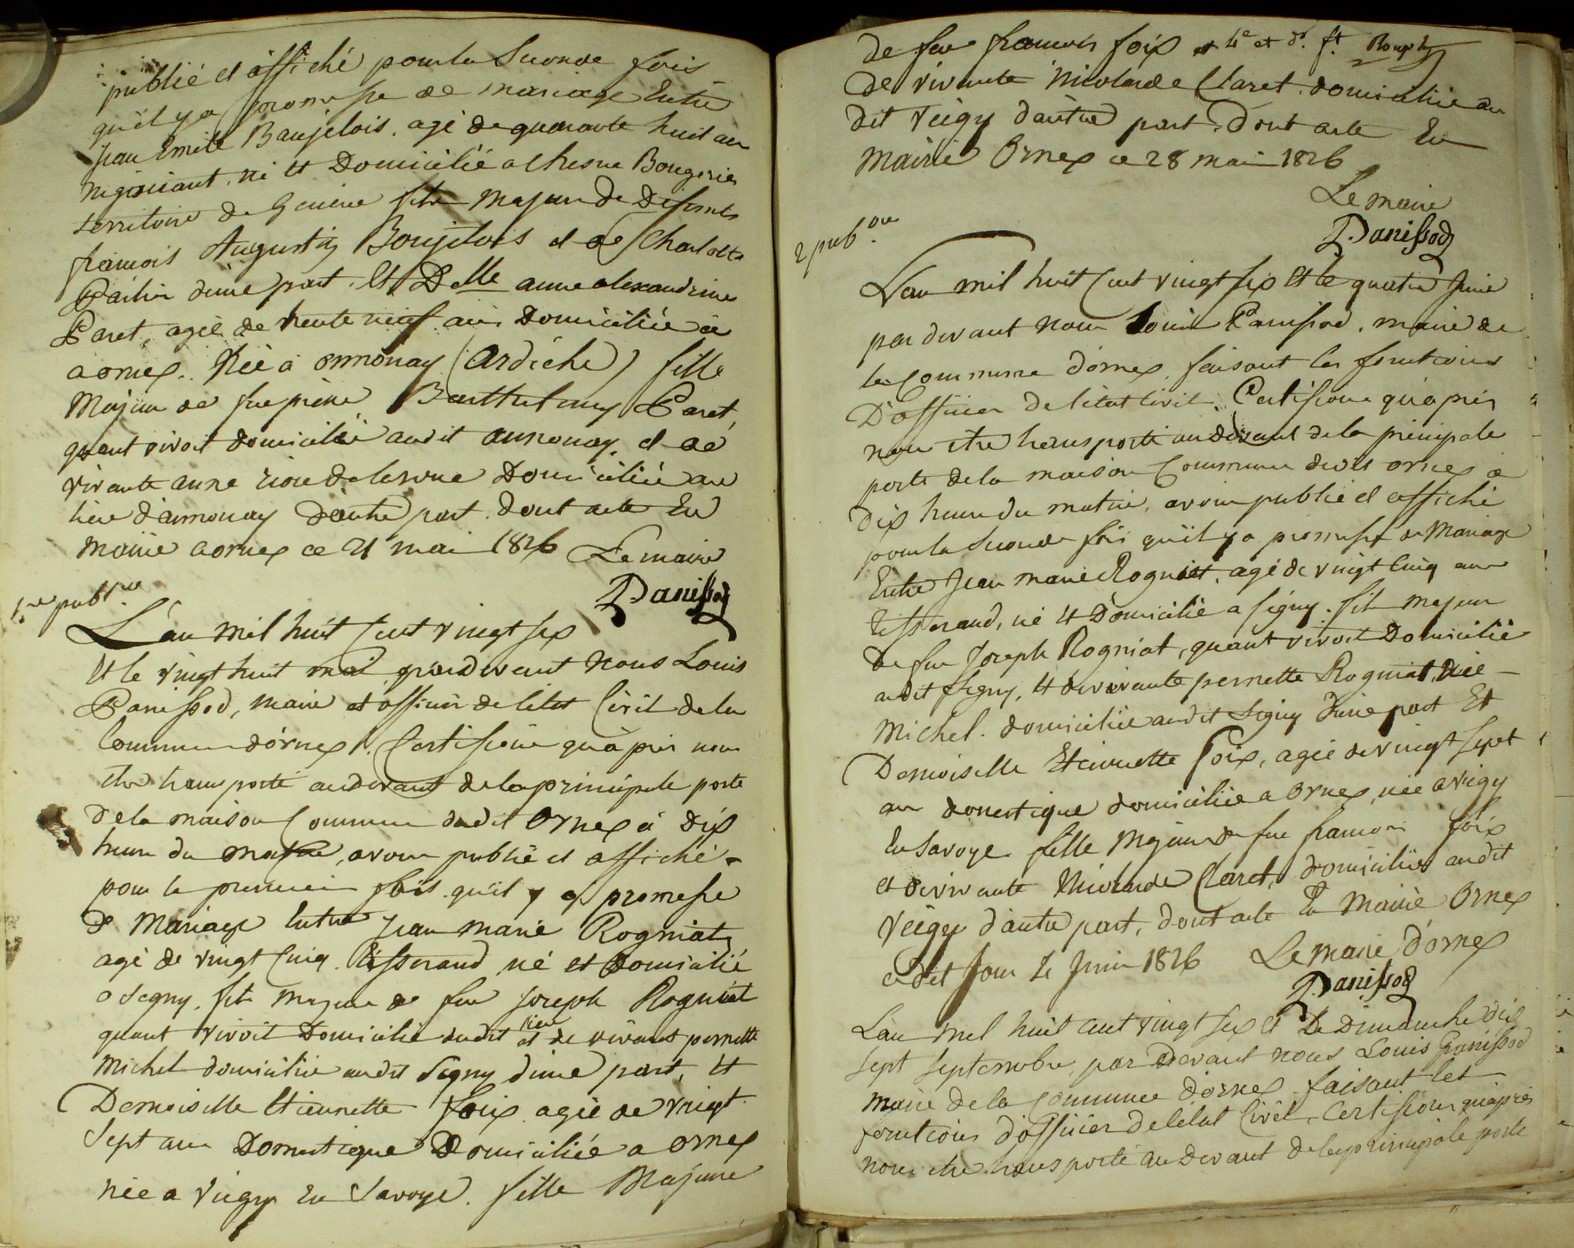 publié et affiché pour la seconde fois
qu'il y a promesse de mariage Entre
Jean Emile Baujelois, agé de quarante huit ans
négociant, né et Domicilié a Chesne Bougeries
territoire de Geneve fils majeur de Defunts
francois Augustin Boujelois et de Charlotte
d'une part, Et Delle anne alexandrine
Paret, agée de trente neuf ans Domiciliée à
a ornex. Née à annonay (ardéche) fille
Majeure de feu pierre Barthelemy Paret,
quant vivoit domicilié audit annonay, et de
vivante anne Domiciliée au
lieu d'annonay d'autre part. dont acte En
mairie a ornex ce 21 mai 1826 Le maire
Panissod
1re publ.on
L'an mil huit Cent vingt six
Et le vingt huit mai, pardevant nous Louis
Panissod, maire et officier de letat Civil de la
Commune d'ornex. Certifions qu'àprès nous
etre transporté audevant de la principale porte
de la maison Commune dudit Ornex à Dix
heure du matin, avoir publié et affiché
pour la premiere fois qu'il y a promesse
de Mariage Entre Jean marie Rogniat
agé de vingt Cinq. tisserand, né et Domicilié
a Segny, fils majeur de feu Joseph Rogniat
quant vivoit Domicilié audit lieu et de vivante pernette
Michel domiciliée audit Segny d'une part, Et
Demoiselle Etiennette foix agée de vingt
Sept ans Domestique Domiciliée a ornex
née a veigy En Savoye. fille Majeure
de feu francois foix
de vivante Nicolarde Claret domiciliée au
dit Veigy d'autre part. Dont acte En
Mairie Ornex ce 28 mai 1826
Le maire
Panissod
2 pub.on
L'an mil huit Cent vingt six Et le quatre Juin
par devant nous Louis Panissod, maire de
la Commune d'ornex, faisant les fonctions
D'officier de létat Civil. Certifions qu'après
nous etre transporté audevant de la principale
porte de la maison Commune dudit ornex à
dix heure du matin, avoir publié et affiché
pour la seconde fois qu'il y a promesse de Mariage
Entre Jean marie Rogniat, agé de vingt Cinq ans
tisserand, né Et Domicilié a Segny. fils majeur
de feu Joseph Rogniat, quant vivoit Domicilié
audit Segny, Et de vivante pernette Rogniat, Née
Michel. domiciliée audit Segny d'une part Et
Demoiselle Etiennette Foix, agée de vingt sept
ans domestique domiciliée a Ornex, née a veigy
En Savoye fille Majeure de feu francois foix
et de vivante Nicolarde Claret, domiciliée audit
Veigy d'autre part, dont acte En Mairie Ornex
cedit Jour 4 Juin 1826 Le maire D'ornex
Panissod
L'an mil huit cent vingt six et Le Dimanche dix
sept septembre, par devant nous Louis Panissod
maire de la Commune d'ornex, faisant les
fonctions d'officier de létat Civil. Certifions qu'après
nous etre transporté audevant de la principale porte